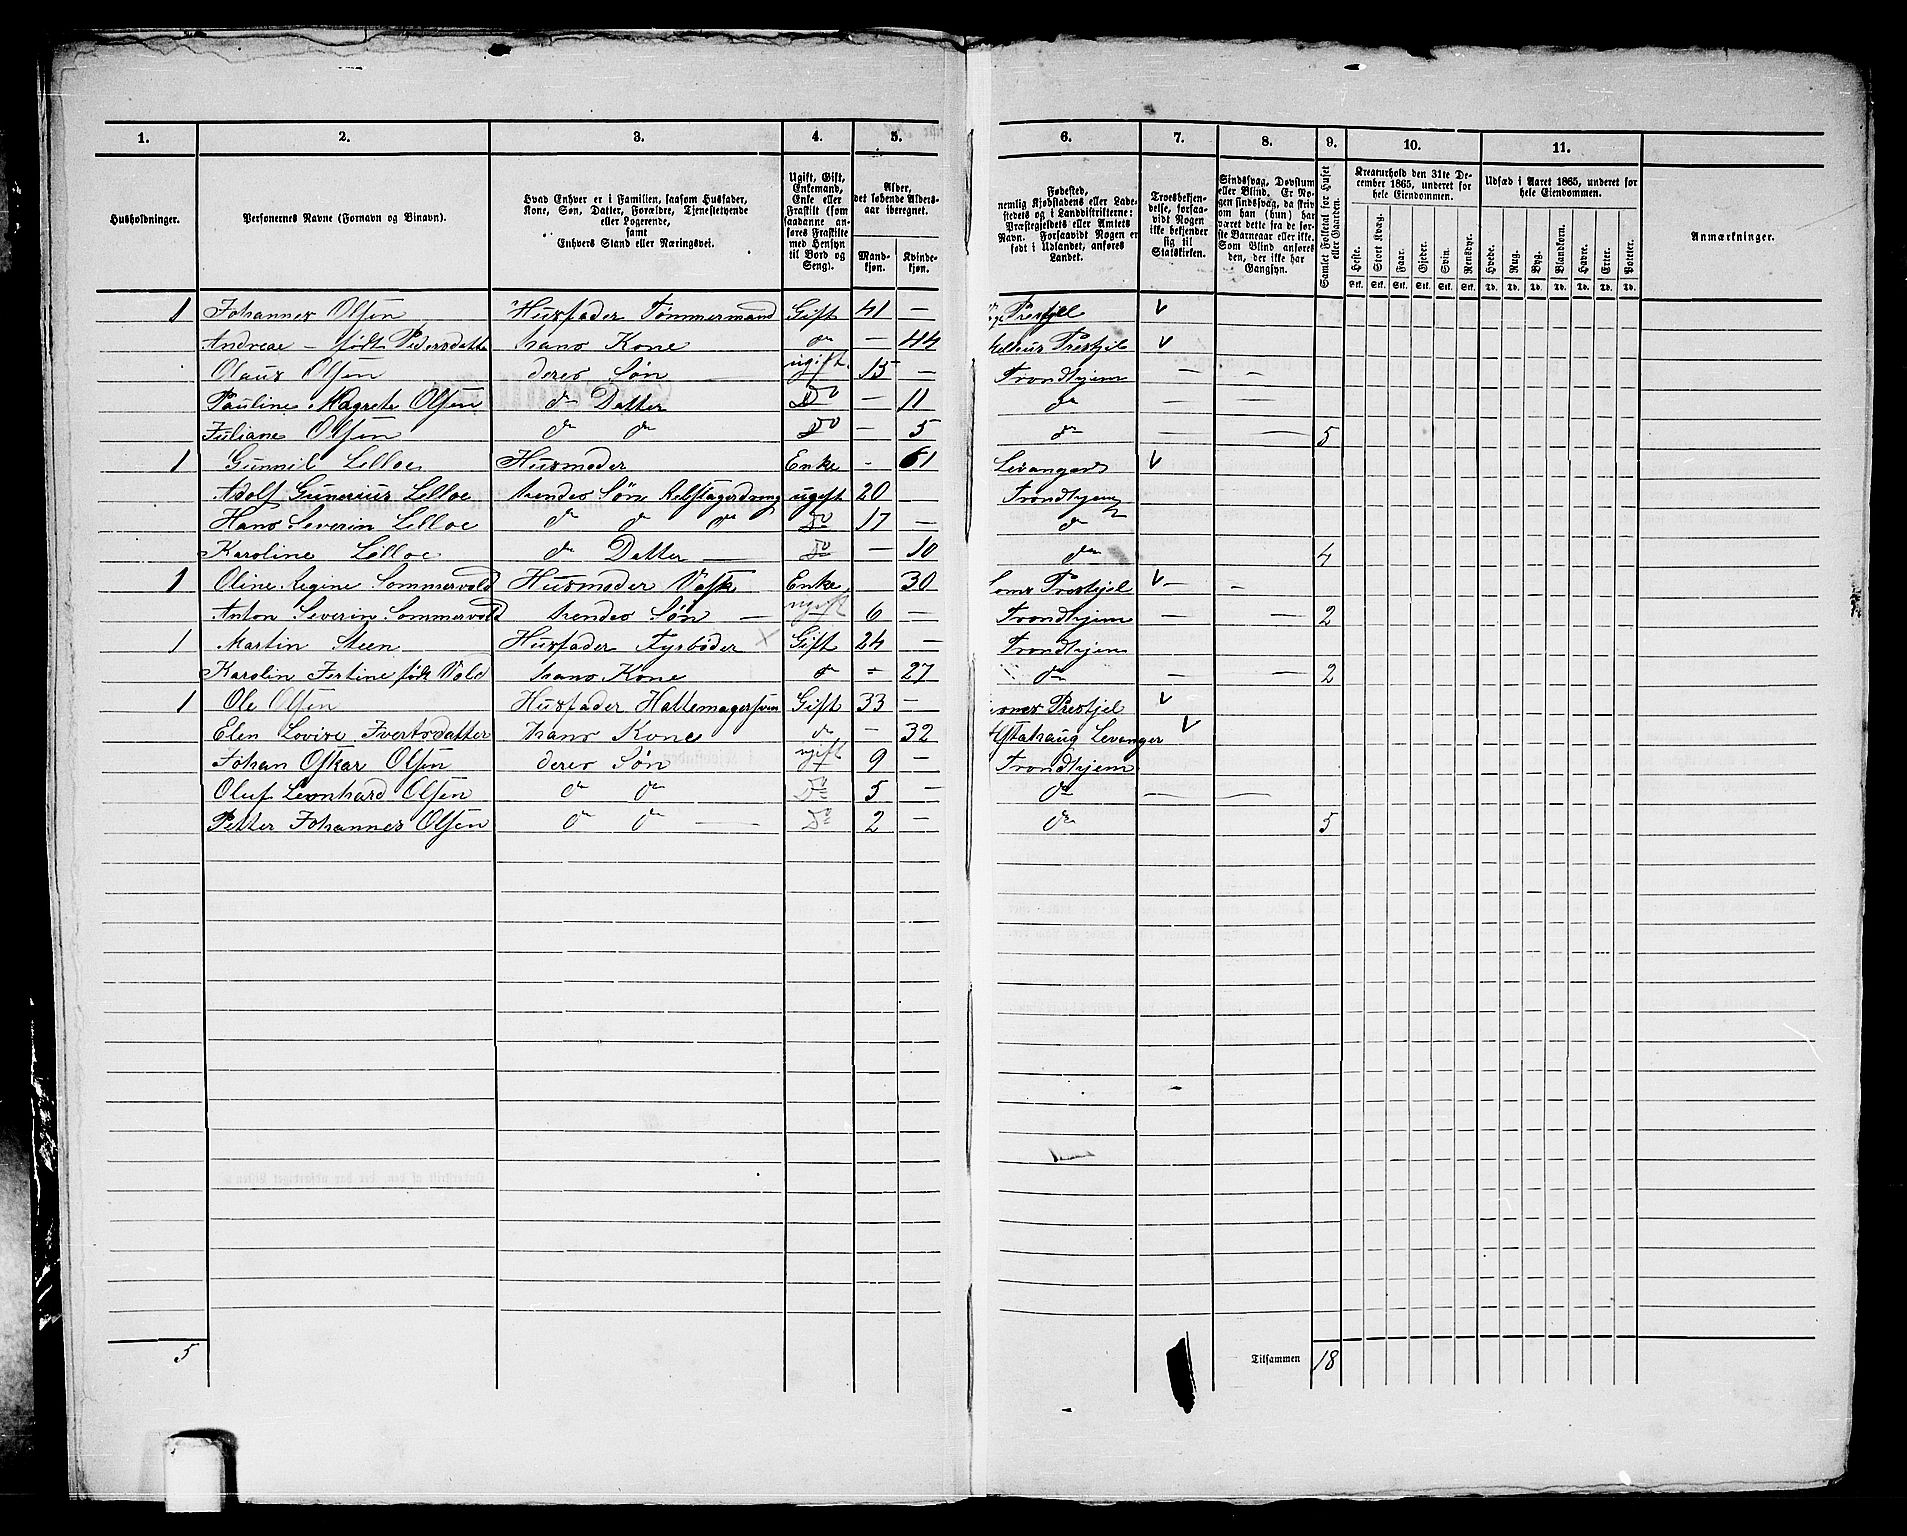 1. 2. 3. 4. 5. 6. 7. 8. 9. 10. 11.
Husholdninger.
Personernes Navne (Fornavn og Binavn).
Hvad Enhver er i Familien, saasom Husfader,
Kone, Søn, Datter, Forældre, Tjenestetyende
eller Logerende,
samt
Enhvers Stand eller Næringsvei.
Ugift, Gift,
Enkemand,
Enke eller
Fraskilt (som
saadanne an-
føres Fraskilte
med Hensyn
til Bord og
Seng).
Alder,
det løbende Alders-
aar iberegnet.
Mand-
kjøn.
Kvinde-
kjøn.
Fødested,
nemlig Kjøbstadens eller Lade-
stedets og i Landdistrikterne:
Præstegjeldets eller Amtets
Navn. Forsaavidt Nogen er
født i Udlandet, anføres
Landet.
Troesbekjen-
delse, forsaa-
vidt Nogen
ikke bekjender
sig til
Statskirken.
Sindssvag, Døvstum
eller Blind. Er No-
gen sindssvag, da skriv
om han (hun) har
været dette fra de før-
ste Barneaar eller ikke.
Som Blind ansøres
den, der ikke har
Gangsyn.
Samlet Folketal for Huset
eller Gaarden.
Kreaturhold den 31te De-
cember 1865, underet for
hele Eiendommen.
Heste. Stort Kvæg. Faar. Gjeder. Svin. Rensdyr.
Stk. Stk. Stk. Stk. Stk. Stk.
Udsæd i Aaret 1865, underet for
hele Eiendommen.
Hvede. Rug. Byg. Blandkorn. Havre. Erter. Poteter.
Td. Td. Td. Td. Td. Td. Td.
Anmærkninger.
1 Johannes Olsen Husfader Tømmermand Gift 41 — Prestjel v
Andreae — født Pedersdatte hans Kone do — 44 Prestjel v
Olaus Olsen deres Søn ugift 15 — Trondhjem — —
Pauline Magrete Olsen do Datter Do — 11 do — —
Juliane Olsen do do Do — 5 do — — 5
1 Gunnil Lelloe Husmoder Enke - 61 Levanger v
Adolf Gunerius Lelloe hendes Søn ugift 20 — Trondhjem
Hans Severin Lelloe do do do Do 17 — do
Karoline Lelloe do Datter — Do — 10 do 4
1 Oline Regine Sommervold Husmoder Vask Enke 30 Prestjel v — -
Anton Severin Sommervold hendes Søn — ugift 6 — Trondhjem — 2
1 Martin Steen Husfader Fyrbøder × Gift 24 — Trondhjem
Karolin Jertine født Vold hans Kone do - 27 do — — 2
1 Ole Olsen Husfader Hattemagersven Gift 33 — Prestjel v
Elen Lovise Ivertsdatter hans Kone do — 32 Levanger v
Johan Oskar Olsen deres Søn ugift 9 — Trondhjem
Oluf Leonhard Olsen do do Do 5 — do — —
Petter Johannes Olsen do do — Do 2 — do 5
5
Tilsammen 18